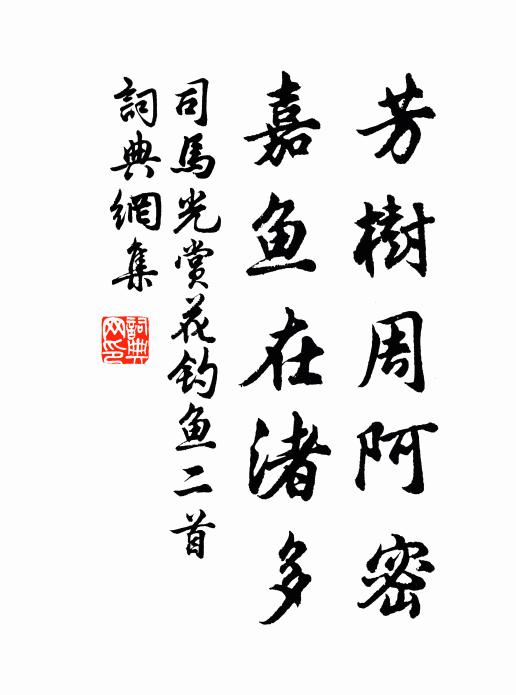 芳樹周阿密
嘉鱼在渚多
司馬光赏花钓鱼二首
詞典網集
詞典网印